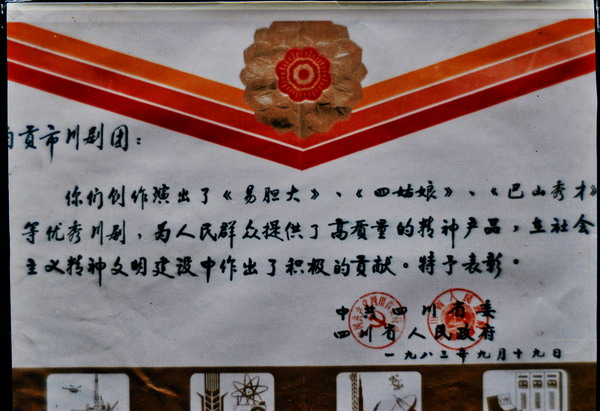 自贡市川剧团：
你们创作演出了《易胆大》、《四姑娘》、《巴山秀才》
等优秀川剧，为人民群众提供了高质量的精神产品，在社会
主义精神文明建设中作出了积极的贡献。特予表彰。
中共四川省委
四川省人民政府
一九八三年九月十九日